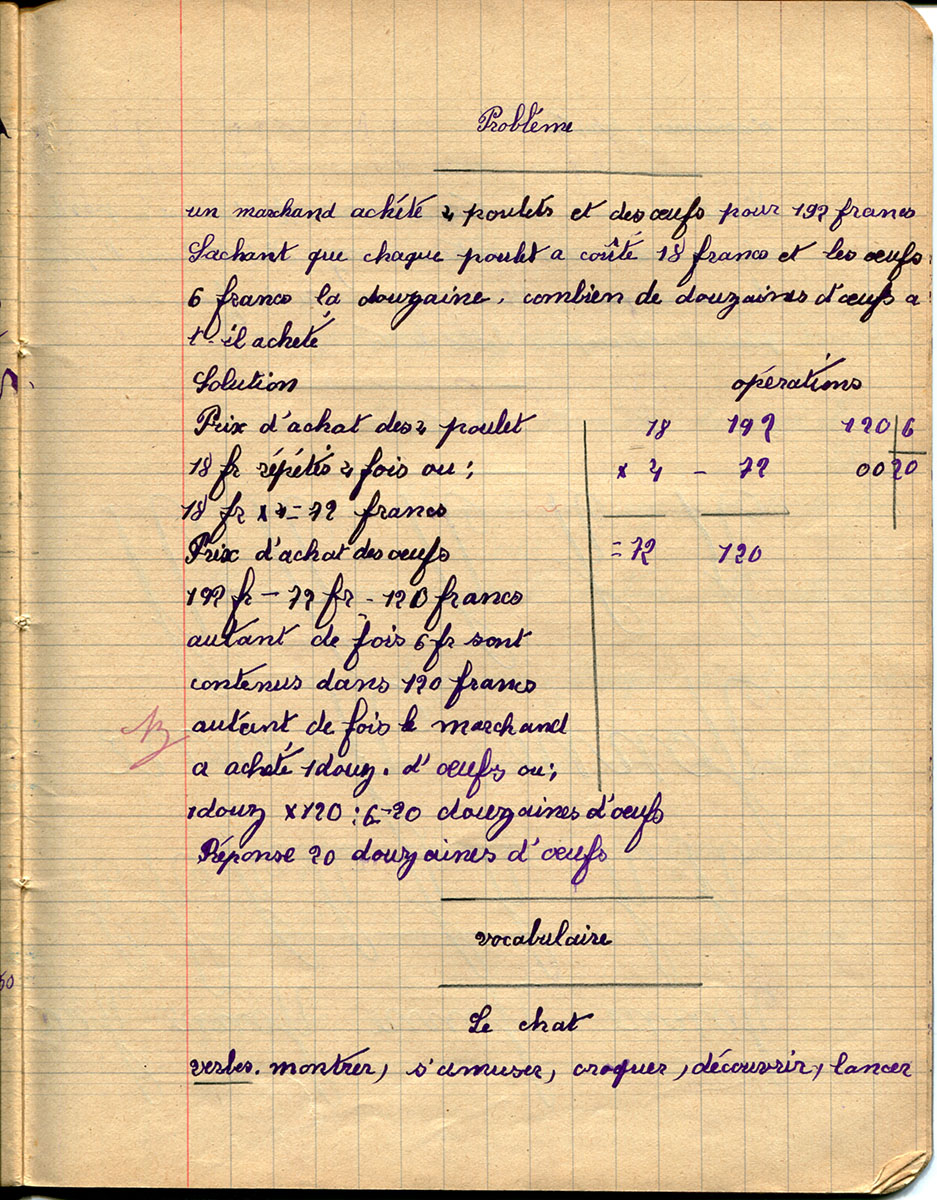 Problème
un marchand achéte 4 poulets et des œufs pour 192 francs
Sachant que chaque poulet a coûté 18 francs et les œufs
6 francs la douzaine, combien de douzaines d'œufs a
t-il acheté
Solution opérations
Prix d'achat des 4 poulet 18 192 120 6
18 fr répétés 4 fois ou ; × 4 - 72 00 20
18 fr × 4 = 72 francs
Prix d'achat des œufs = 72 120
192 fr - 72 fr - 120 francs
autant de fois 6 fr sont
contenus dans 120 francs
autant de fois le marchand
a acheté 1 douz. d'œufs ou ;
1 douz × 120 : 6 - 20 douzaines d'œufs
Réponse 20 douzaines d'œufs
vocabulaire
Le chat
verbes. montrer, s'amuser, croquer, découvrir, lancer